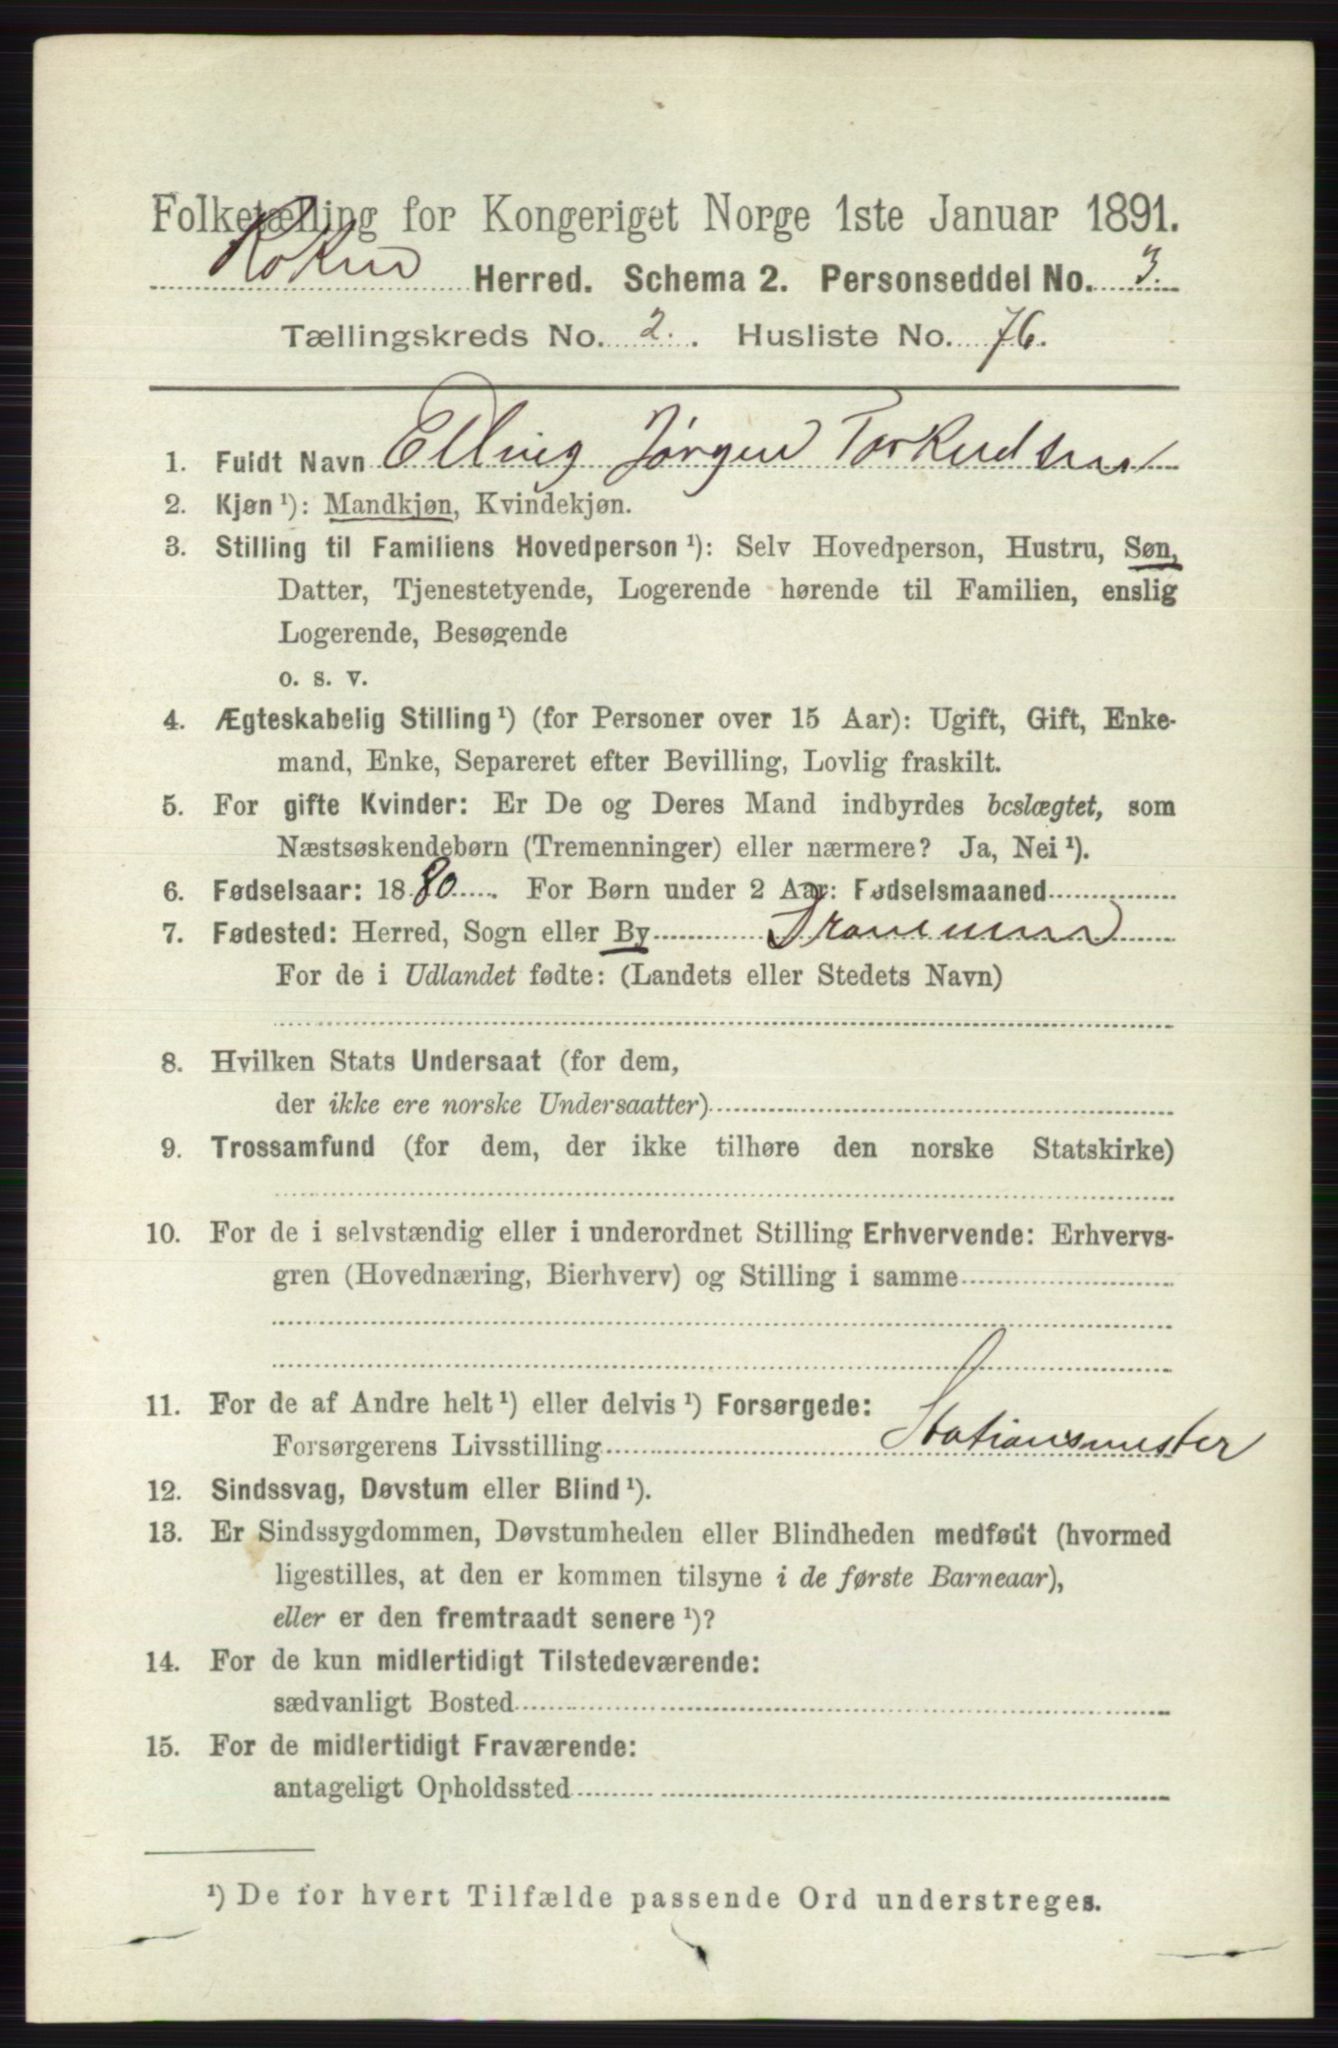 Folketælling for Kongeriget Norge 1ste Januar 1891.
Herred. Schema 2. Personseddel No. 3.
Tællingskreds No. 2. Husliste No. 76.
1. Fuldt Navn Elling Jørgen Torkildsen
2. Kjøn ¹): Mandkjøn, Kvindekjøn.
3. Stilling til Familiens Hovedperson ¹): Selv Hovedperson, Hustru, Søn,
Datter, Tjenestetyende, Logerende hørende til Familien, enslig
Logerende, Besøgende
o. s. v.
4. Ægteskabelig Stilling ¹) (for Personer over 15 Aar): Ugift, Gift, Enke-
mand, Enke, Separeret efter Bevilling, Lovlig fraskilt.
5. For gifte Kvinder: Er De og Deres Mand indbyrdes beslægtet, som
Næstsøskendebørn (Tremenninger) eller nærmere? Ja, Nei ¹).
6. Fødselsaar: 1880. For Børn under 2 Aar: Fødselsmaaned
7. Fødested: Herred, Sogn eller By Drammen
For de i Udlandet fødte: (Landets eller Stedets Navn)
8. Hvilken Stats Undersaat (for dem,
der ikke ere norske Undersaatter)
9. Trossamfund (for dem, der ikke tilhøre den norske Statskirke)
10. For de i selvstændig eller i underordnet Stilling Erhvervende: Erhvervs-
gren (Hovednæring, Bierhverv) og Stilling i samme
11. For de af Andre helt ¹) eller delvis ¹) Forsørgede:
Forsørgerens Livsstilling Stationsmester
12. Sindssvag, Døvstum eller Blind ¹).
13. Er Sindssygdommen, Døvstumheden eller Blindheden medfødt (hvormed
ligestilles, at den er kommen tilsyne i de første Barneaar),
eller er den fremtraadt senere ¹)?
14. For de kun midlertidigt Tilstedeværende:
sædvanligt Bosted
15. For de midlertidigt Fraværende:
antageligt Opholdssted
¹) De for hvert Tilfælde passende Ord understreges.